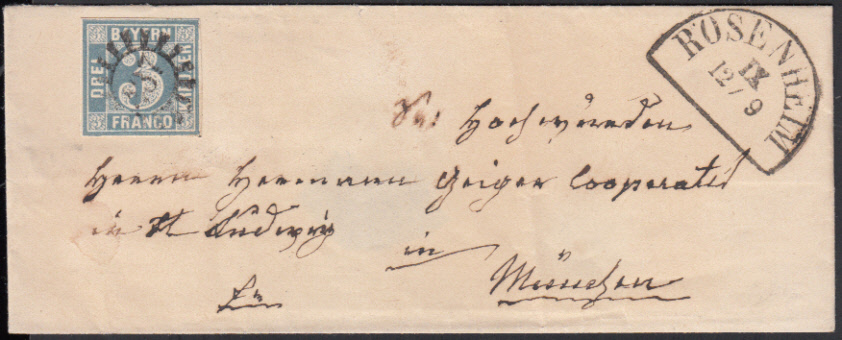 BAYERN
DREI
3
KREUZER
FRANCO
ROSENHEIM
IX
12/9
Sr: Hochwürden
Herrn Hermann Geiger Cooperator
in St Ludwig
in
München